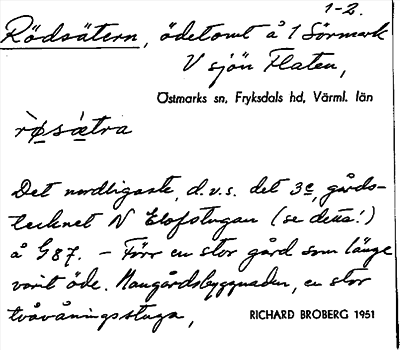 1-2.
Rödsätern, ödetomt å 1 Sörmark
V sjön Flaten,
Östmarks sn, Fryksdals hd, Värml. län
rø̀sætra
Det nordligaste, d.v.s. det 3e, gårds-
tecknet N Elofstugan (se detta!)
å G87. - Förr en stor gård som länge
varit öde. Mangårdsbyggnaden, en stor
tvåvåningsstuga,
RICHARD BROBERG 1951